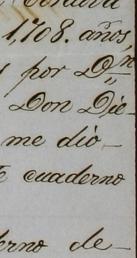 1,708. años,
por Dn
Don Die-
me dió
cuaderno
erno de-